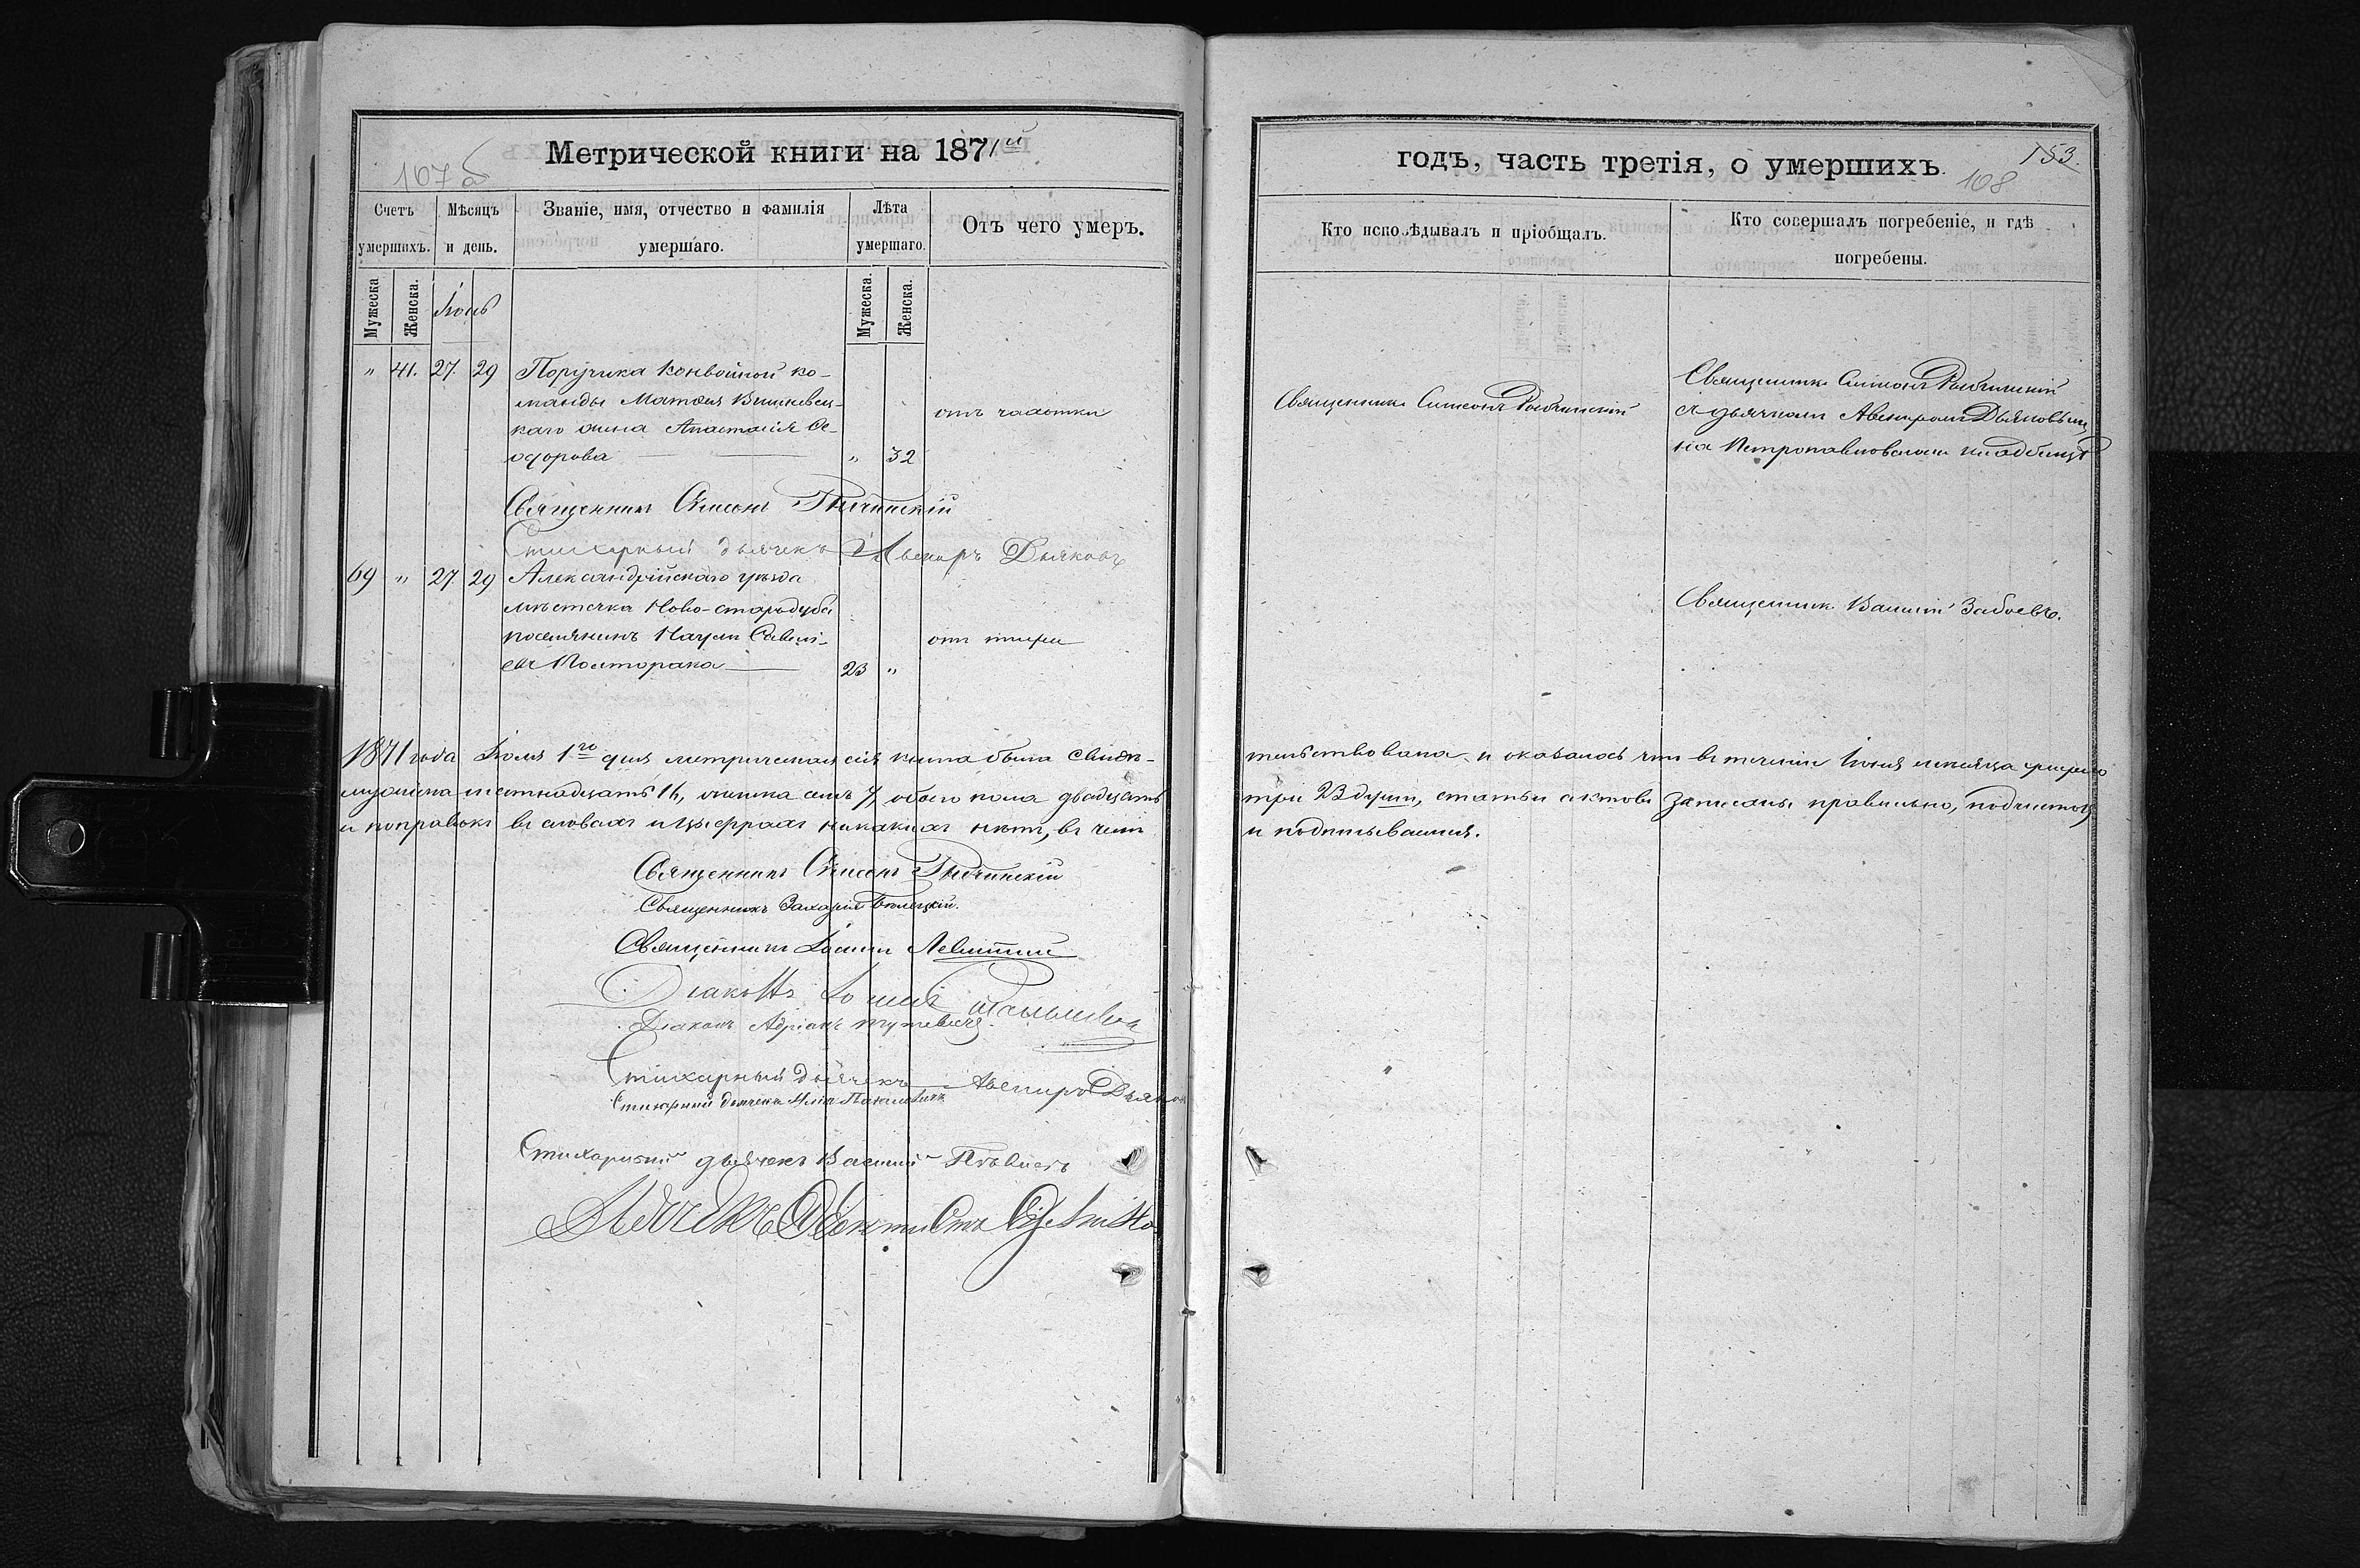 Метрической книги на 1871й
107 б
Счетъ умершихъ.
Мѣсяцъ и день.
Званіе, имя, отчество и фамилія умершаго.
Лѣта умершаго.
Отъ чего умеръ.
Мужеска
Женска.
Іюнь
Мужеска.
Женска.
„ 41. 27. 29 Поручика конвойной ко-
манды Матѳея Вишневец-
каго жена Анастасія Ѳе-
одорова „ 32
отъ чахотки
Священникъ Симеонъ
Стихарный дьячекъ Авениръ Дьяковъ
69 „ 27 29 Александрійскаго уѣзда
мѣстечка Ново-стародуба
поселянинъ Наумъ Савелі-
евъ Полторака 23 „
отъ тифа
1871 года Іюля 1го дня метрическая сія книга была свидѣ-
мущина шестнадцать 16, женска семь 7, обоего пола двадцать
и поправокъ въ словахъ и цыфрахъ никакихъ нѣтъ, въ чемъ
Священникъ Симеонъ
Священникъ Захарія Бѣлецкій.
Священникъ Іоаннъ Левитскій
Діаконъ
Діаконъ Адріанъ
Стихарный дьячекъ Авениръ Дьяков
Стихарный дьячекъ Илія
Стихарный дьячекъ Василій
годъ, часть третія, о умершихъ.
153.
108
Кто исповѣдывалъ и пріобщалъ.
Кто совершалъ погребеніе, и гдѣ погребены.
Священникъ Симеонъ
Священникъ Симеонъ
съ дьячкомъ Авениромъ Дьяковымъ
на Петропавловскомъ кладбищѣ
Священникъ Василій Забоевъ.
тельствована, и оказалось что въ теченіи Іюня мѣсяца умерло
три 23 души, статьи актовъ записаны правильно, подчистокъ
и подписываемся.